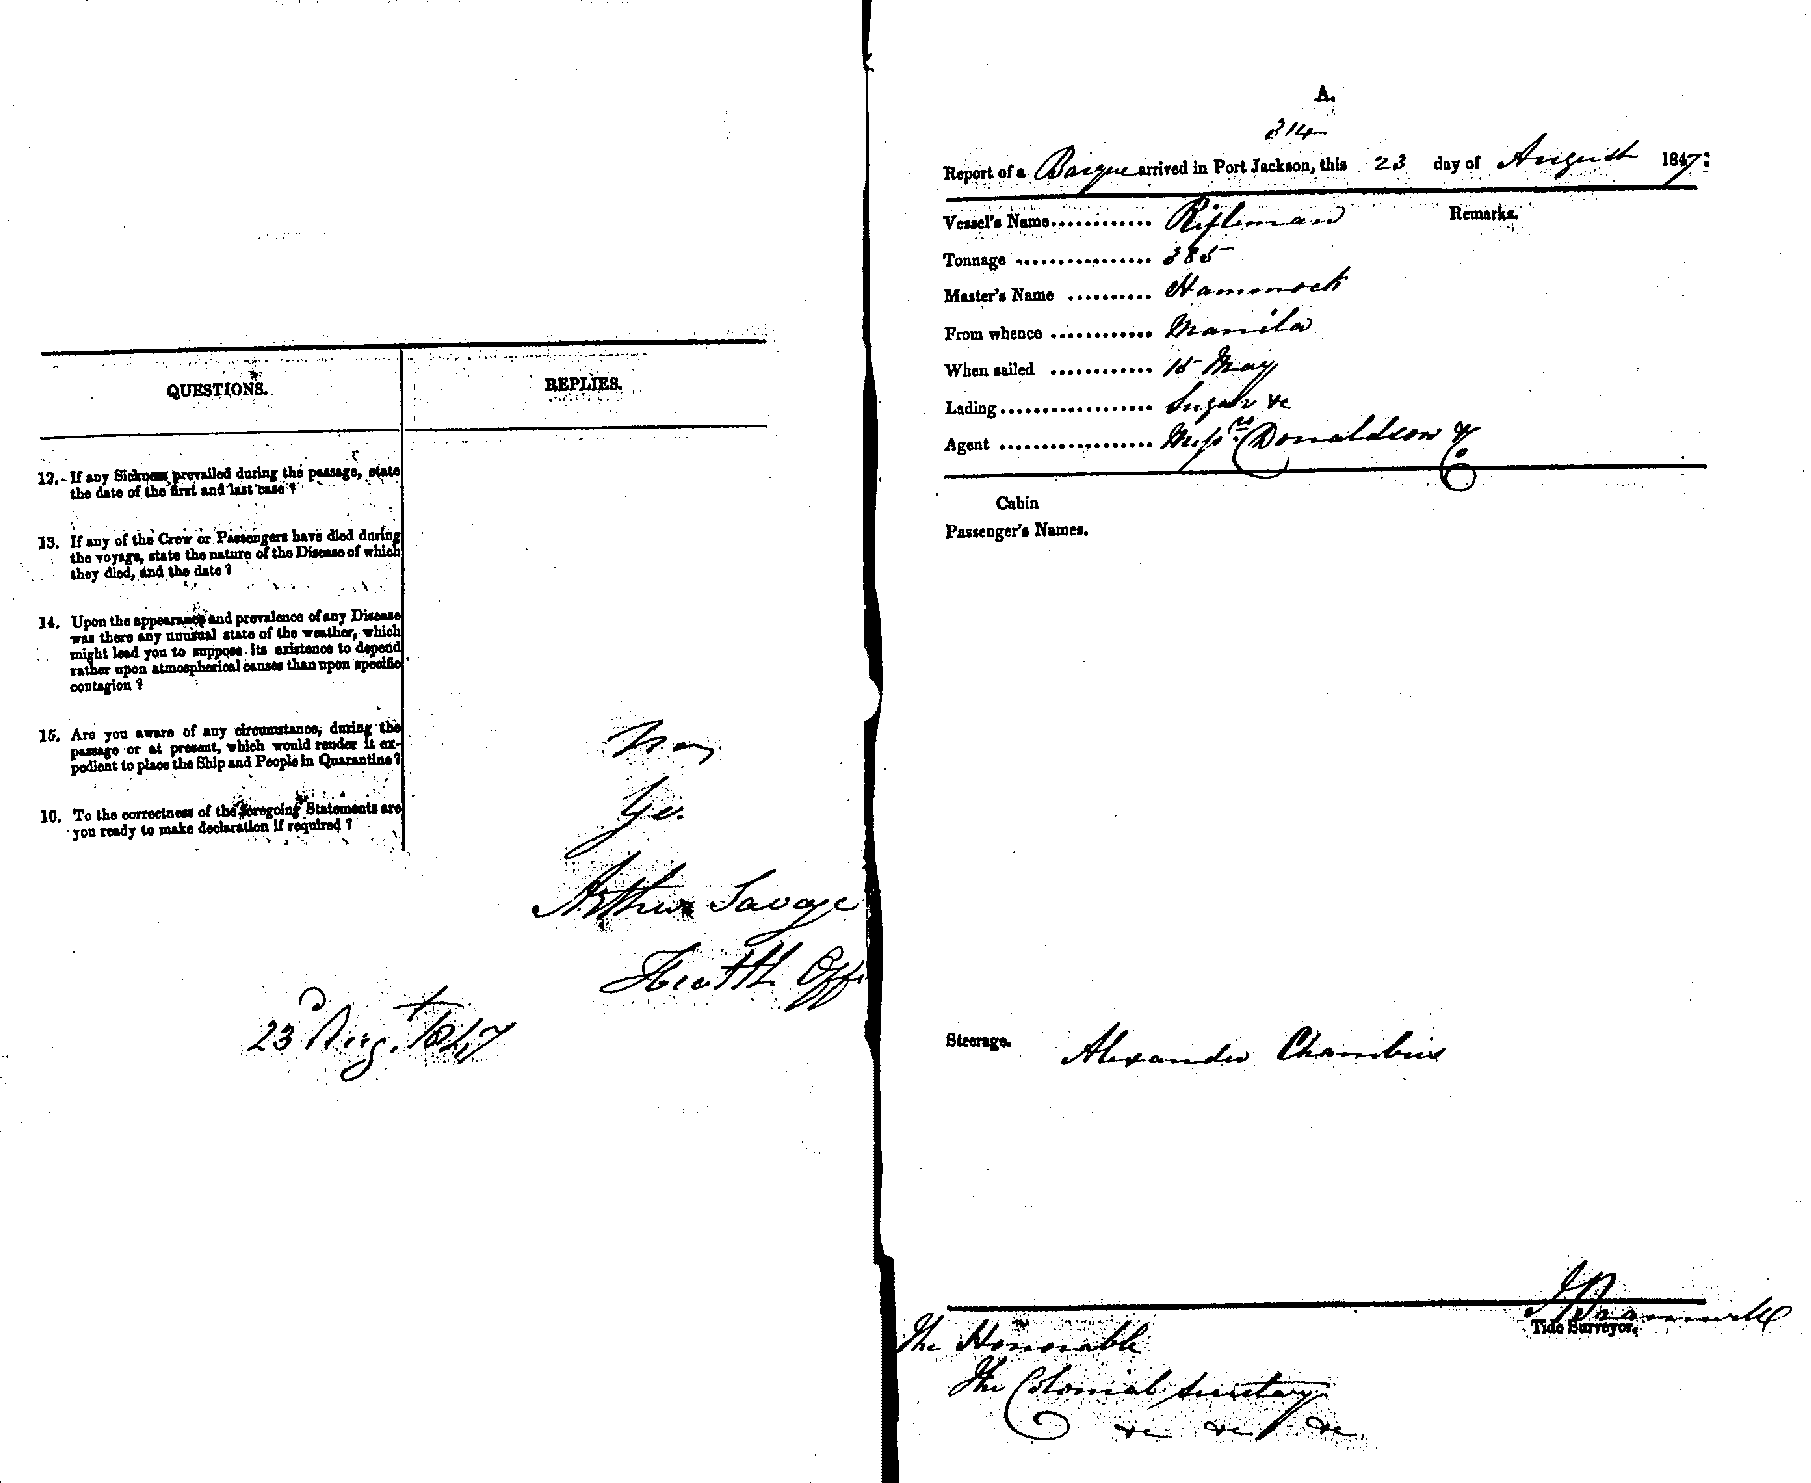 QUESTIONS. REPLIES.
12. If any Sickness prevailed during the passage, state
the date of the first and last case?
13. If any of the Crew or Passengers have died during
the voyage, state the nature of the Disease of which
they died, and the date?
14. Upon the appearance and prevalence of any Disease
was there any unusual state of the weather, which
might lead you to suppose its existence to depend
rather upon atmospherical causes than upon specific
contagion?
15. Are you aware of any circumstance, during the
passage or at present, which would render it ex-
pedient to place the Ship and People in Quarantine?
16. To the correctness of the foregoing Statements are
you ready to make declaration if required?
Arthur Savage
Health Offr
23d Augt. 1847
A.
314
Report of a Barque arrived in Port Jackson, this 23 day of August 1847:
Vessel's Name............ Rifleman Remarks.
Tonnage ................ 385
Master's Name .......... Hammock
From whence ............ Manila
When sailed ............ 15 May
Lading.................. Sugar &c
Agent .................. Messrs. Donaldson & Co
Cabin
Passenger's Names.
Steerage. Alexander Chambers
Tide Surveyor.
The Honorable
The Colonial Secretary
&c &c &c